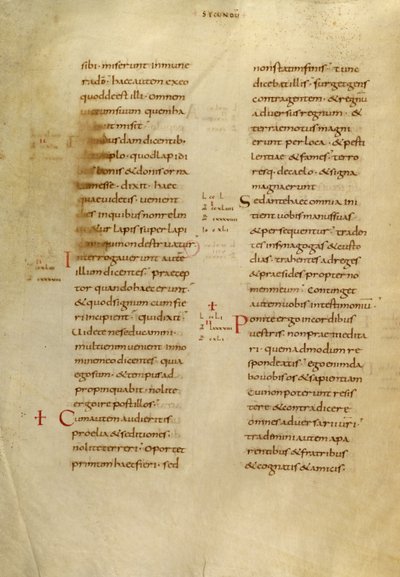 SECUNDU
sibi · miserunt in mune
rado · haec autem ex eo
quod deest illi · omnem
victum suum quem ha
buit misit
dam dicentib;
templo · quod lapidi
bonis & donis orna
tum esse · dixit · haec
quae videtis · venient
dies in quibus non relin
&ur lapis super lapi
dem qui non destruatur
Interrogaverunt aute
illum dicentes · praecep
tor quando haec erunt
& quod signum cum fie
ri incipient · qui dixit
Videte ne seducamini
multi enim venient in no
mine meo dicentes · quia
ego sum · & tempus ad
propinquabit · nolite
ergo ire post illos ·
Cum autem audieritis
proelia & seditiones ·
nolite terreri · Oportet
primum haec fieri · sed
non statim finis · Tunc
dicebat illis · surget gens
contra gentem · & regnu
adversus regnum · &
terrae motus magni
erunt per loca · & pesti
lentiae & fames · terro
resq; de caelo · & signa
magna erunt
Sed ante haec omnia ini
tient vobis manus suas
& persequentur · traden
tes in synagogas & custo
dias · trahentes ad reges
& praesides propter no
men meum · Continget
autem vobis in testimoniu
Ponite ergo in cordibus
vestris · non praemedita
ri · quemadmodum re
spondeatis · ego enim da
bo vobis os & sapientiam
cui non poterunt resis
tere & contradicere
omnes adversarii vestri
trademini autem a pa
rentibus & fratribus
& cognatis & amicis ·